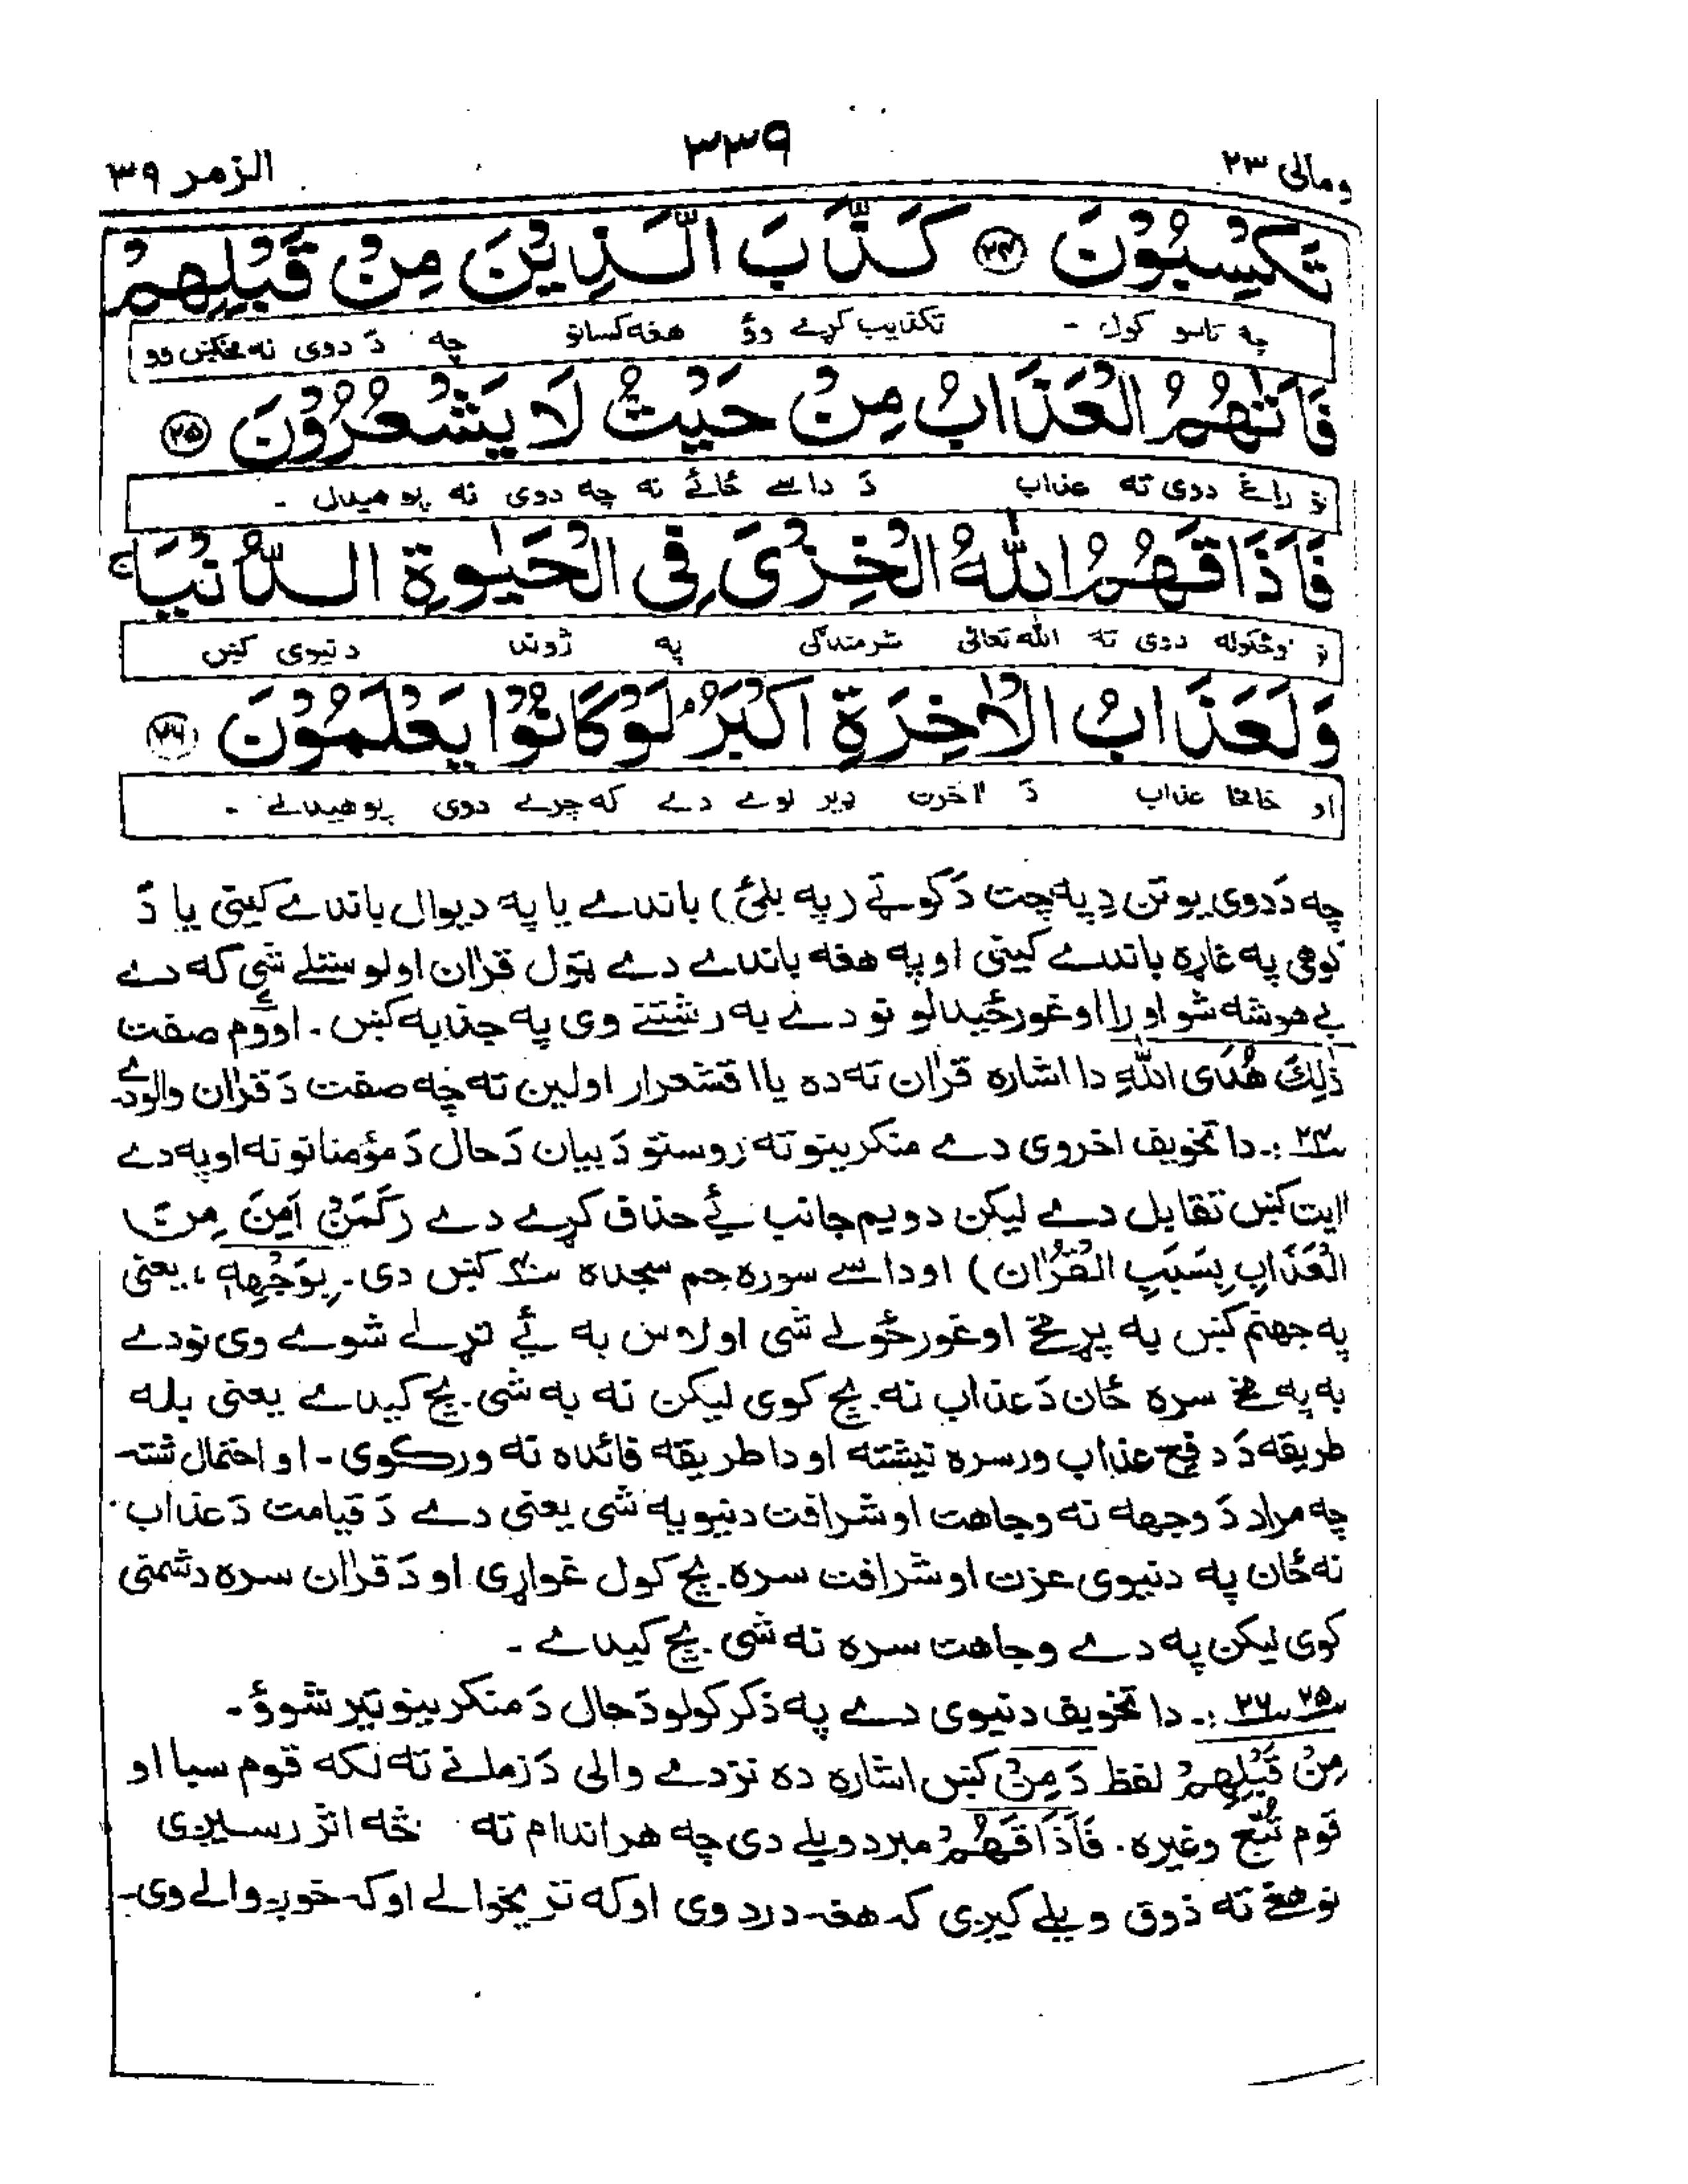 ومالی ۲۳
۳۳۹
الزمر ۳۹
تَكْسِبُوْنَ ﴿۲۴﴾ كَذَّبَ الَّذِيْنَ مِنْ قَبْلِهِمْ
چه تاسو کول - تکذیب کړے وؤ هغه کسانو چه دَ دوی نه مخکښ وو
فَاَتٰىهُمُ الْعَذَابُ مِنْ حَيْثُ لَا يَشْعُرُوْنَ ﴿۲۵﴾
نو راغے دوی ته عذاب دَ داسے ځائے نه چه دوی نه پوهیدل -
فَاَذَاقَهُمُ اللّٰهُ الْخِزْىَ فِى الْحَيٰوةِ الدُّنْيَا ۚ
نو وڅکوله دوی ته الله تعالٰی شرمندګی په ژوند دنیوی کښ
وَلَعَذَابُ الْاٰخِرَةِ اَكْبَرُ ۘ لَوْ كَانُوْا يَعْلَمُوْنَ ﴿۲۶﴾
او خامخا عذاب دَ اٰخرت ډیر لوے دے که چرے دوی پوهیدلے -
چه دَ دوی یو تن دِ په چت دَ کوټے (په بلئ) باندے یا په دیوال باندے کینی یا دَ
کوهی په غاړه باندے کینی او په هغه باندے دے ټول قراٰن اولوستلے شی که دے
بے هوشه شو او را اوغورځیدلو نو دے به رشتنے وی په جذبه کښ. اوؤم صفت
ذٰلِكَ هُدَى اللّٰهِ دا اشاره قراٰن ته ده یا اقشعرار اولین ته چه صفت دَ قراٰن والو دے
۲۴ :- دا تخویف اخروی دے منکرینو ته زوستو دَ بیان دَ حال دَ مؤمنانو نه او په دے
اٰیت کښ تقابل دے لیکن دویم جانب ئے حذف کړے دے (كَمَنْ اٰمِنَ مِنَ
الْعَذَابِ بِسَبَبِ الْقُرْاٰن) او داسے سوره حم سجده کښ دی. بِوَجْهِهٖ، یعنی
په جهنم کښ به پړمخے اوغورځولے شی او لاس به ئے تړلے شوے وی نو دے
به په مخ سره ځان دَ عذاب نه بچ کوی لیکن نه به شی بچ کیدے یعنی بله
طریقه دَ دفع عذاب ورسره نیشته او دا طریقه فائده نه ورکوی - او احتمال شته
چه مراد دَ وجهه نه وجاهت او شرافت دنیویه شی یعنی دے دَ قیامت دَ عذاب
نه ځان په دنیوی عزت او شرافت سره بچ کول غواړی او دَ قراٰن سره دشمنی
کوی لیکن په دے وجاهت سره نه شی بچ کیدے -
۲۵، ۲۶ :- دا تخویف دنیوی دے په ذکر کولو دَ حال دَ منکرینو تیر شوؤ -
مِنْ قَبْلِهِمْ لفظ دَ مِنْ کښ اشاره ده نزدے والی دَ زمانے ته لکه قوم سبا او
قوم تُبَّع وغیره. فَاَذَاقَهُمْ مبرد ویلے دی چه هر اندام ته څه اثر رسیږی
نو هغے ته ذوق ویلے کیږی که هغه درد وی او که تریخوالے او که خوږوالے وی-